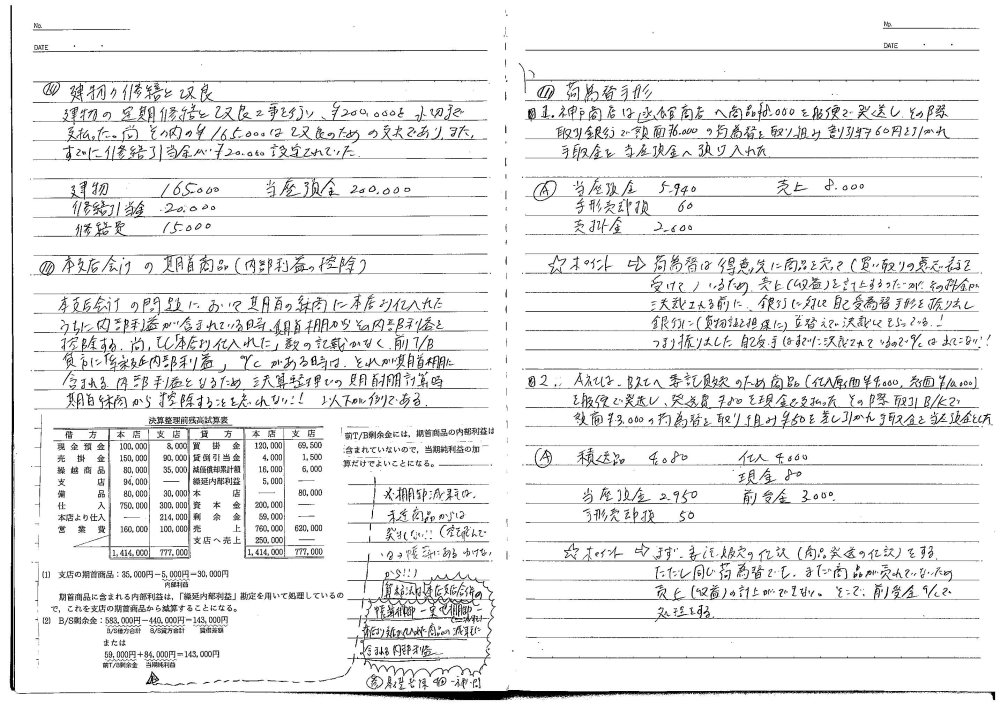 No.
DATE ・ ・
建物の修繕と改良
建物の定期修繕と改良工事を行い、¥200.000を小切手で
支払った。尚 その内の¥165.000は改良のための支出であり、また、
すでに修繕引当金が¥20.000 設定されていた。
建物 165.000 当座預金 200.000
修繕引当金 20.000
修繕費 15.000
本支店会計 の 期首商品(内部利益の控除)
本支店会計 の問題において期首の
うちに内部利益が含まれている時、期首棚からその内部利益を
控除する。尚、もし本店より仕入れた、数の記載がなく、前T/B
貸方に「繰延内部利益」%cがある時は、それが期首棚に
含まれる内部利益となるため、決算整理での期首棚計算時
期首 から控除することを忘れない!! 以下が例である。
決算整理前残高試算表
借方 本店 支店 貸方 本店 支店
現金預金 100,000 8,000 買掛金 120,000 69,500
売掛金 150,000 90,000 貸倒引当金 4,000 1,500
繰越商品 80,000 35,000 減価償却累計額 16,000 6,000
支店 94,000 ― 繰延内部利益 5,000 ―
備品 80,000 30,000 本店 ― 80,000
仕入 750,000 300,000 資本金 200,000 ―
本店より仕入 ― 214,000 剰余金 59,000 ―
営業費 160,000 100,000 売上 760,000 620,000
支店へ売上 250,000 ―
1,414,000 777,000 1,414,000 777,000
前T/B剰余金には、期首商品の内部利益は
含まれていないので、当期純利益の加
算だけでよいことになる。
※棚卸減耗は、
未達商品からは
発生しない!!
から!!)
(1) 支店の期首商品:35,000円−5,000円=30,000円
内部利益
期首商品に含まれる内部利益は、「繰延内部利益」勘定を用いて処理しているの
で、これを支店の期首商品から減算することになる。
(2) B/S剰余金:583,000円−440,000円=143,000円
B/S借方合計 B/S貸方合計 貸借差額
または
59,000円+84,000円=143,000円
前T/B剰余金 当期純利益
含まれる内部利益
No.
DATE ・ ・
荷為替手形
問1. 神戸商店は 商店へ商品¥8.000を船便で発送し その際
取引銀行で額面¥6.000の荷為替を取り組み 割引料60円を引かれ
手取金を当座預金へ預け入れた
Ⓐ 当座預金 5.940 売上 8.000
手形売却損 60
売掛金 2.000
☆ポイント ⇨ 荷為替は得意先に商品を売って(買い取りの意思表示を
受けて)いるため、売上(収益)を計上するのだが、その料金が
決裁される前に、銀行に対して自己受為替手形を振り出し
銀行に(貨物証を担保に)立替えて決裁してもらっている!
問2. A社は、B社へ委託販売のため商品(仕入原価¥4.000、売価¥10.000)
を船便で発送し、発送費¥80を現金で支払った その際取引B/Kで
額面¥3.000の荷為替を取り組み ¥50を差し引かれ手取金を当座預金とした
Ⓐ 積送品 4.080 仕入 4.000
現金 80
当座預金 2.950 前受金 3.000
手形売却損 50
☆ポイント ⇨ まず、委託販売の仕訳(商品発送の仕訳)をする。
ただし同じ荷為替でも、まだ商品が売れていないため
売上(収益)の計上ができない。そこで、前受金%cで
処理する。